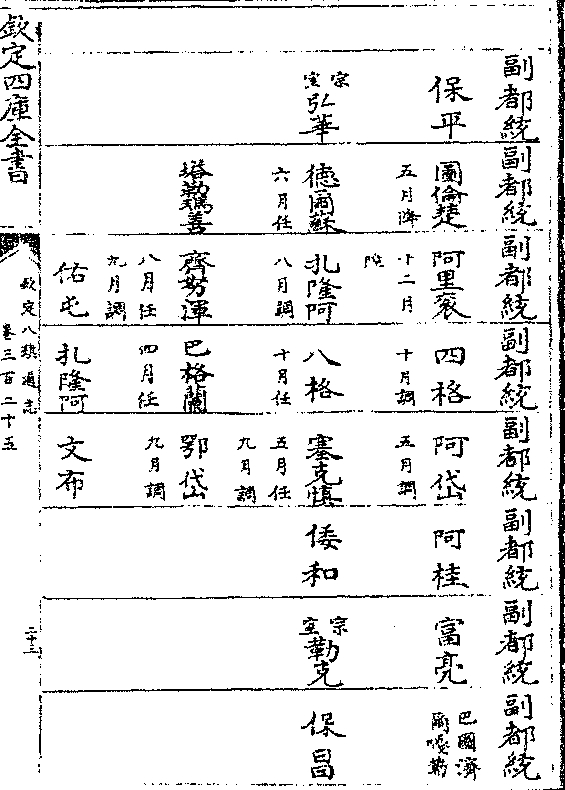 副都統
保平
宗室弘華
副都統
圖倫楚
五月降
德爾蘇
六月任
塔勒瑪善
副都統
阿里袞
十二月
扎隆阿
八月調
齊努渾
八月任
九月調
佑屯
副都統
四格
十月調
八格
十月任
巴格蘭
四月任
扎隆阿
副都統
阿岱
五月調
塞克慎
五月任
九月調
鄂岱
九月調
文布
副都統
阿桂
倭和
副都統
富亮
宗室勒克
副都統
巴圖濟
爾噶勒
保昌
欽定四庫全書
欽定八旗通志
卷三百二十五
二十三